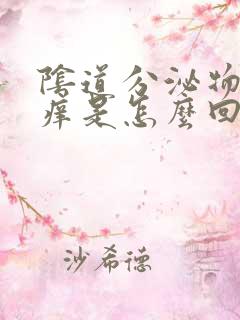 陰道分泌物
痒是怎麼回
沙希德